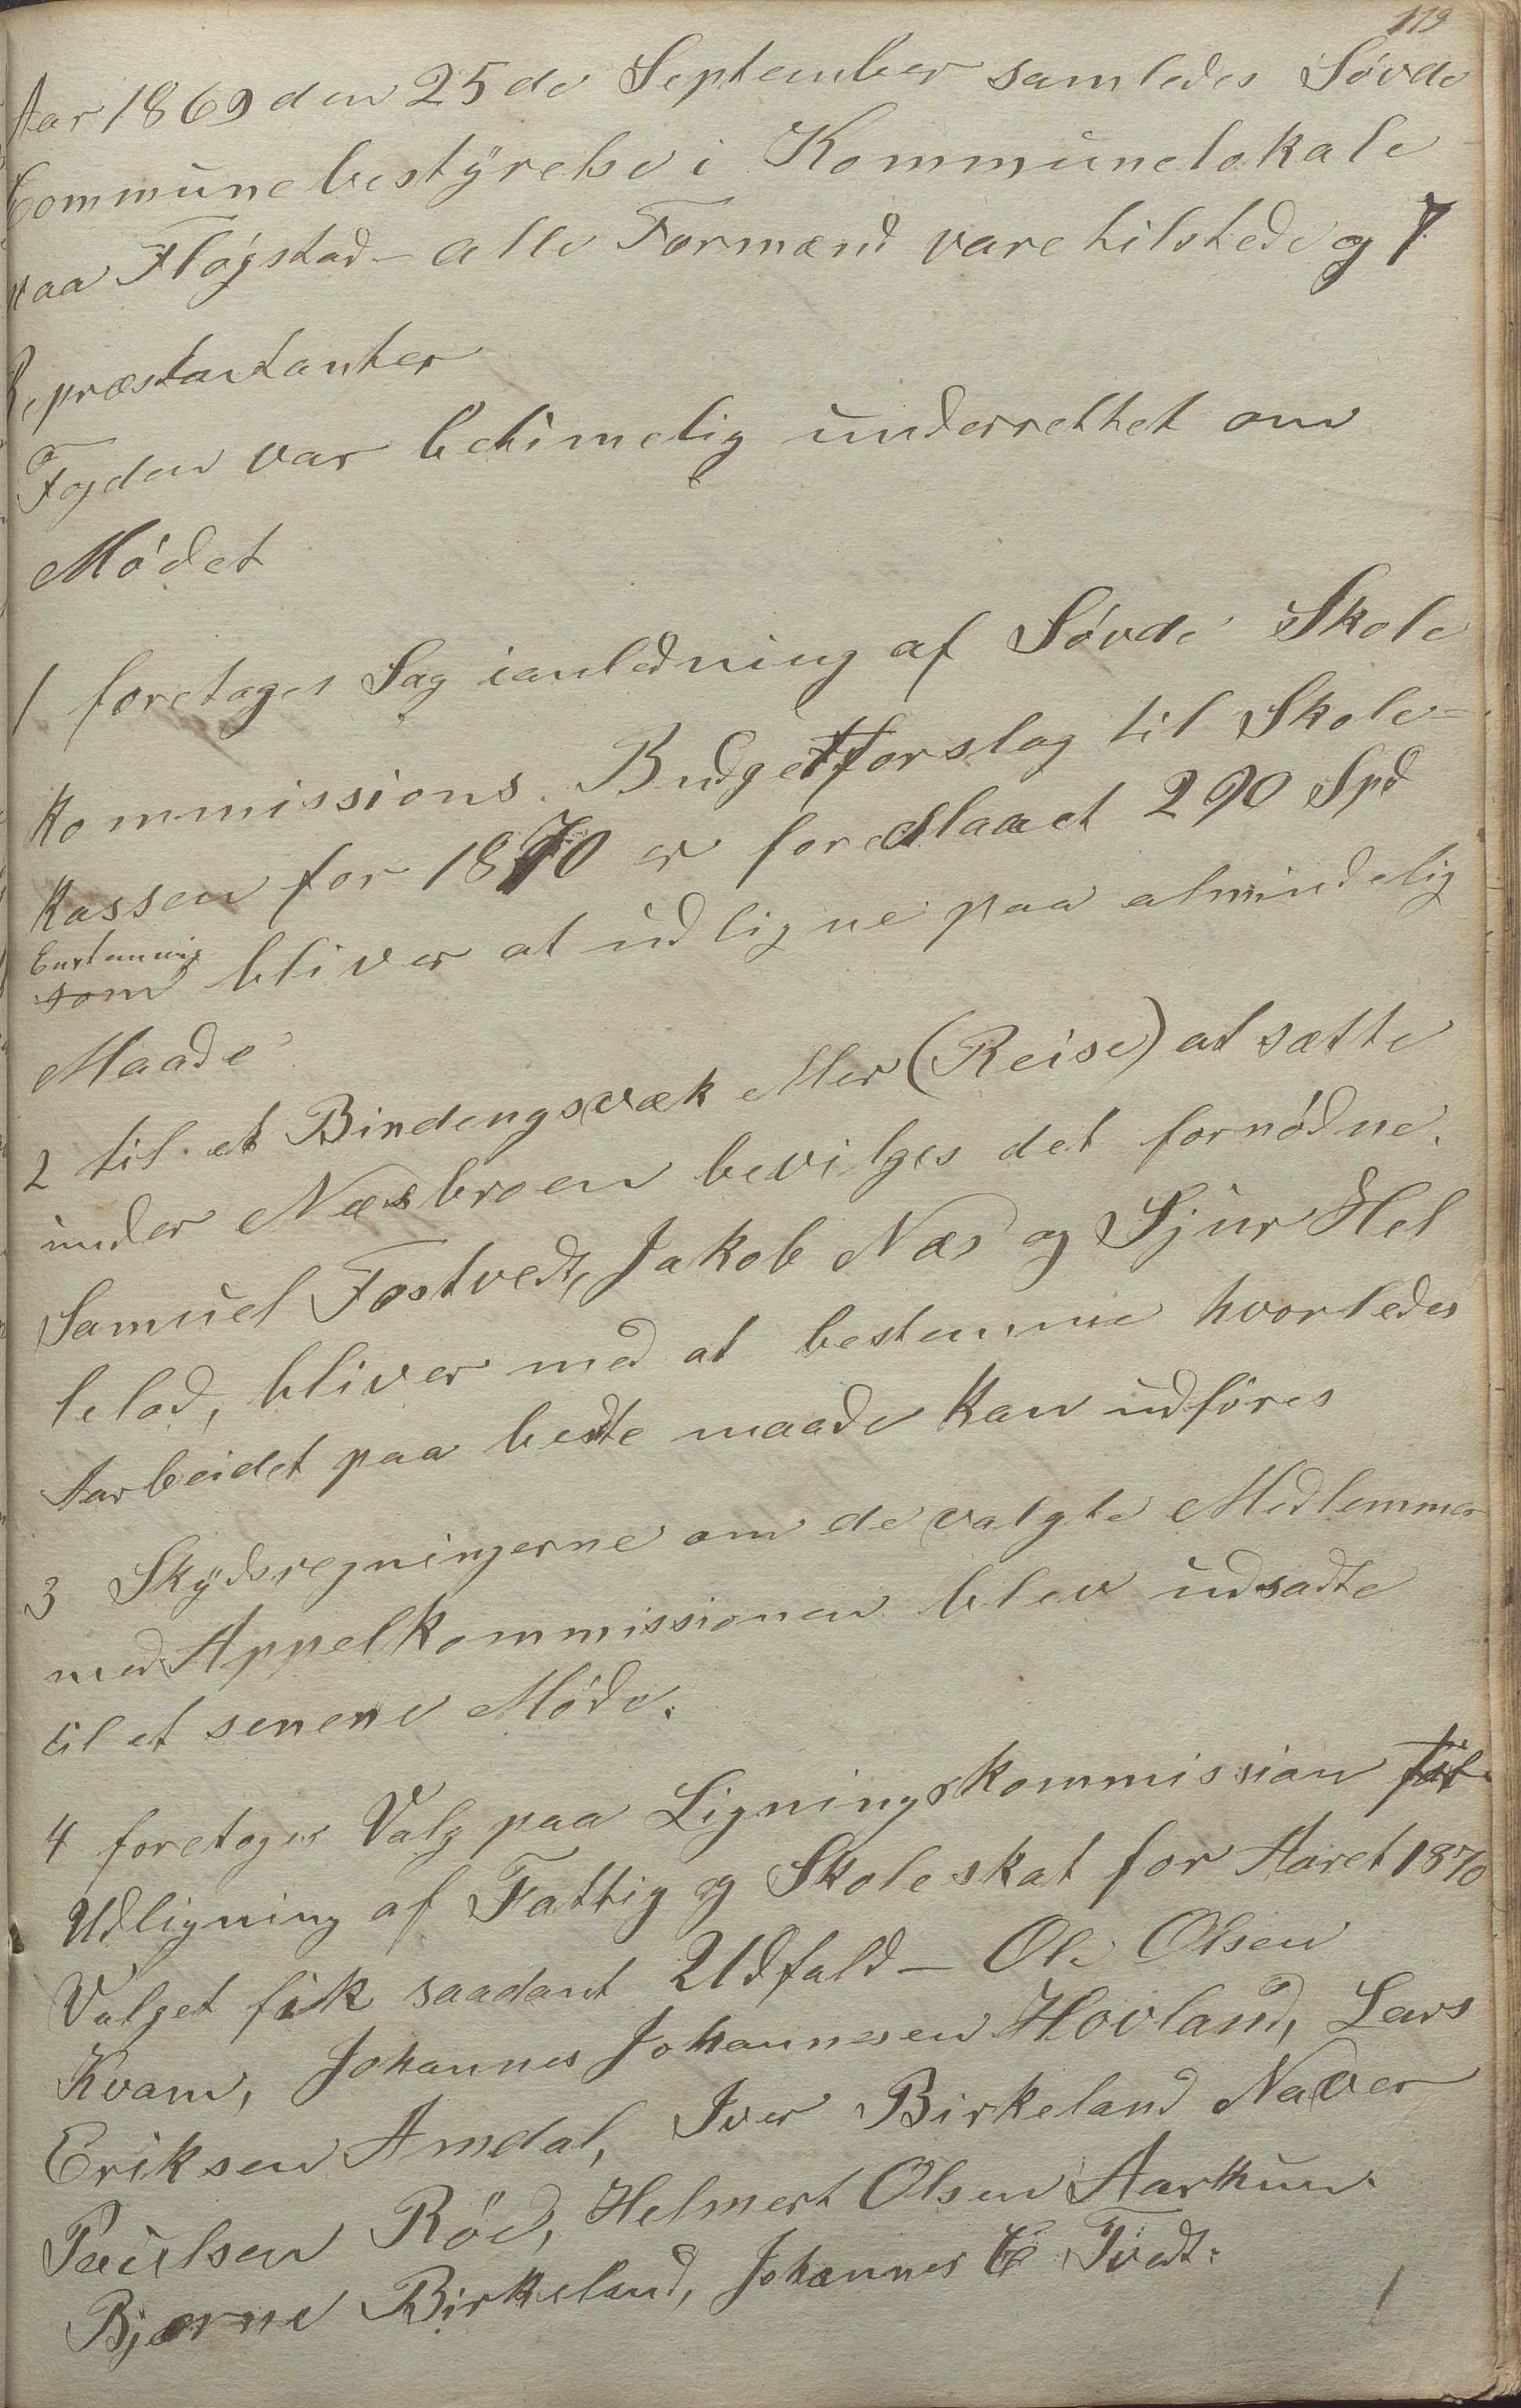 119
Aar 1869 den 25de September samledes Søvde
Commune bestÿrelse i Kommunelokale
paa Fløgstad - alle Formænd vare tilstede og 7
Repræstantanter
Fogden var betimelig underrettet om
Mødet
1 foretoges Sag ianledning af Søvde Skole
kommissions Budgetforslag til Skole=
kassen for 1870 er foreslaaet 290 Spd
som bliver at udligne paa almindelig
Maade
2 til et Bindengsvæk eller (Reise) at sætte
under Næsbroen bevilges det fornødne.
Samuel Fostvedt, Jakob Næs og Sjur Hel
lelod, bliver med at bestemme hvorledes
Aarbeidet paa bedste maade kan udføres
3 Skÿdsregningerne om de valgte Medlemmer
med Appelkommissionen blev udsadte
til et senere Møde.
4 foretoges Valg paa Ligningskommission til
Udligning af Fattig og Skoleskat for Aaret 1870
Valget fik saadant Udfald - Ole Olsen
Kvam, Johannes Johannesen Hovland, Lars
Eriksen Amdal, Iver Birkeland Naver
Paulsen Rød, Helmert Olsen Aarthun
Bjærne Birkeland, Johannes E Tvedt.